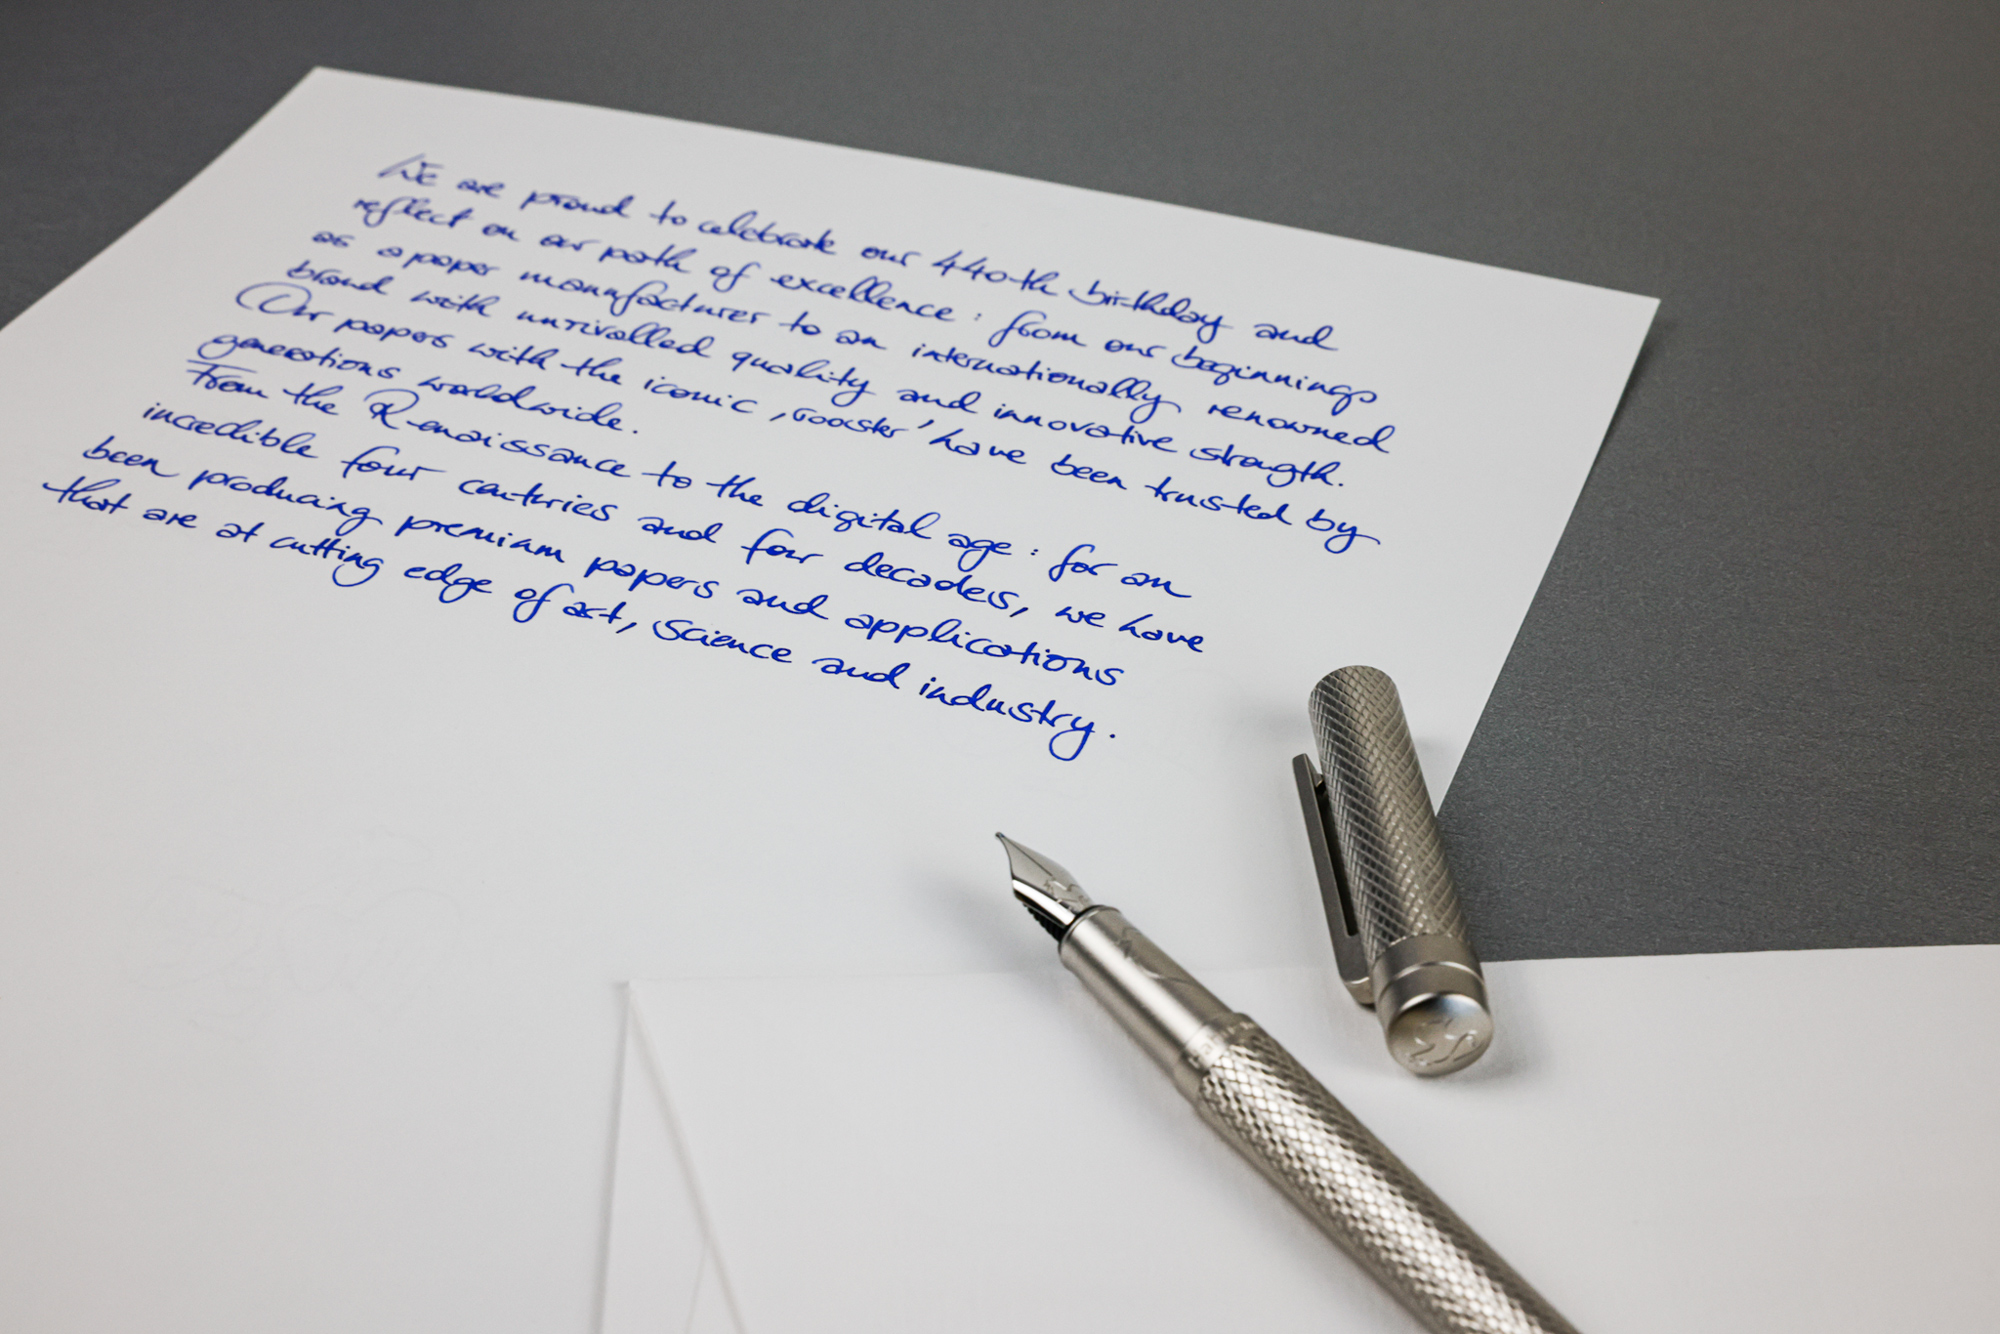 We are proud to celebrate our 440th birthday and
reflect on our path of excellence: from our beginnings
as a paper manufacturer to an internationally renowned
brand with unrivalled quality and innovative strength.
Our papers with the iconic ‚rooster' have been trusted by
generations worldwide.
From the Renaissance to the digital age: for an
incredible four centuries and four decades, we have
been producing premium papers and applications
that are at cutting edge of art, science and industry.